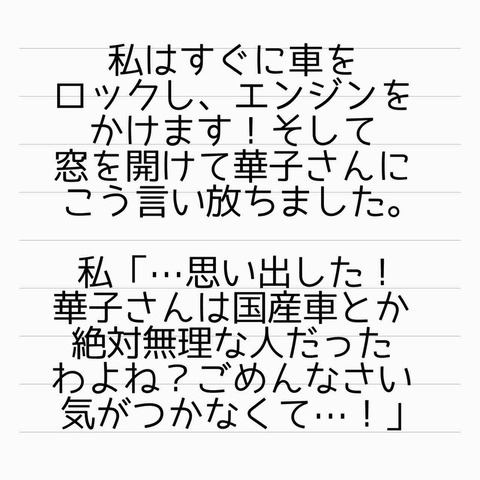 私はすぐに車を
ロックし、エンジンを
かけます！そして
窓を開けて華子さんに
こう言い放ちました。
私「…思い出した！
華子さんは国産車とか
絶対無理な人だった
わよね？ごめんなさい
気がつかなくて…！」